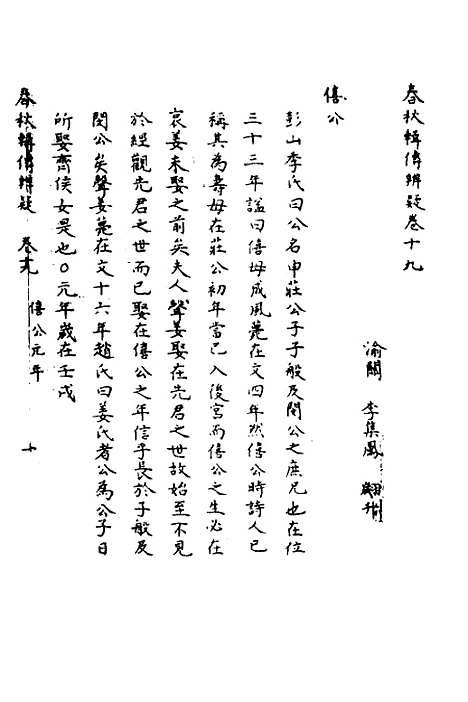 春秋輯傳辨疑卷十九
渝關 李集鳳 翽升
僖公
彭山李氏曰公名申莊公子子般及閔公之庶兄也在位
三十三年諡曰僖母成風薨在文四年然僖公時詩人已
稱其為壽母在莊公初年當已入後宮而僖公之生必在
哀姜未娶之前矣夫人聲姜娶在先君之世故始至不見
於經觀先君之世而已娶在僖公之年信子長於子般及
閔公矣聲姜薨在文十六年趙氏曰姜氏者公為公子日
所娶齊侯女是也○元年歲在壬戌
春秋輯傳辨疑 卷十九 僖公元年